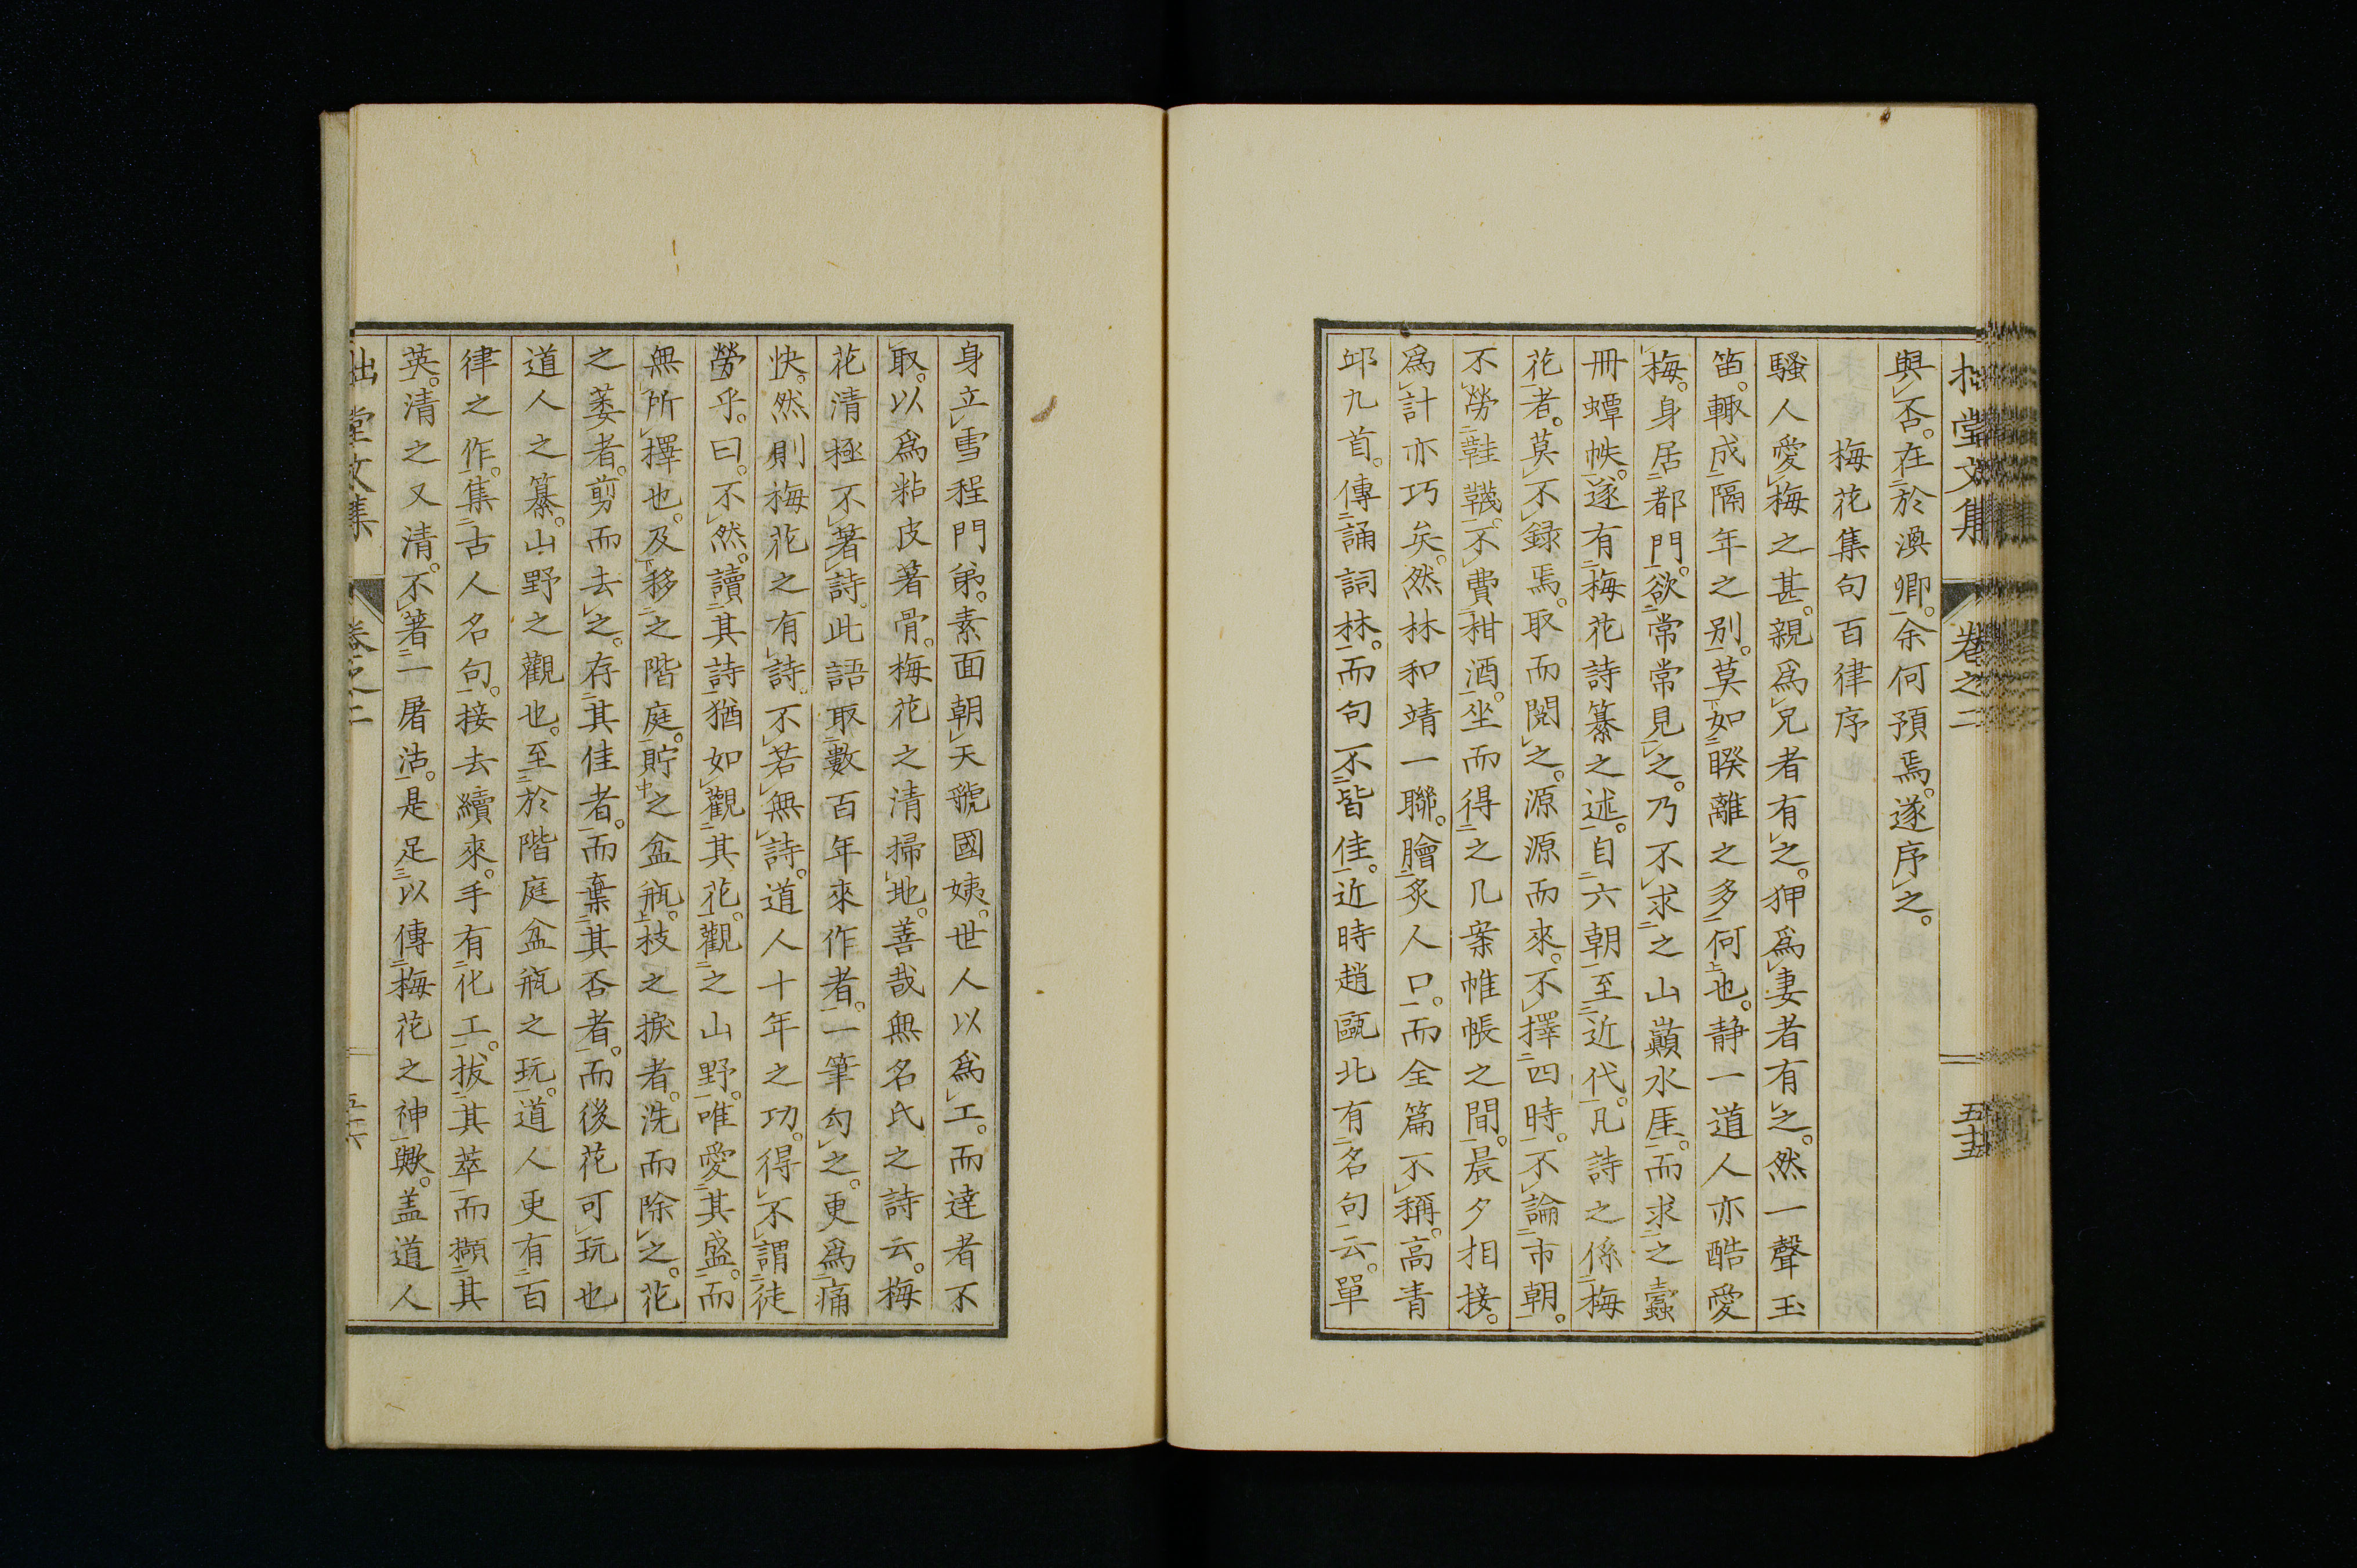 拙堂文集 卷之二 五十五
與否。在於渙卿。余何預焉。遂序之。
梅花集句百律序
騷人愛梅之甚。親爲兄者有之。狎爲妻者有之。然一聲玉
笛。輙成隔年之别。莫如睽離之多何也。静一道人亦酷愛
梅。身居都門。欲常常見之。乃不求之山巓水厓。而求之蠧
冊蟫帙。遂有梅花詩纂之述。自六朝至近代。凡詩之係梅
花者。莫不録焉。取而閲之。源源而來。不擇四時。不論市朝。
不勞鞋韈。不費柑酒。坐而得之几案帷帳之間。晨夕相接。
爲計亦巧矣。然林和靖一聯。膾炙人口。而全篇不稱。高青
邱九首。傳誦詞林。而句不皆佳。近時趙甌北有名句云。單
身立雪程門弟。素面朝天虢國姨。世人以爲工。而達者不
取。以爲粘皮著骨。梅花之清掃地。善哉無名氏之詩云。梅
花清極不著詩。此語取數百年來作者。一筆勾之。更爲痛
快。然則梅花之有詩。不若無詩。道人十年之功。得不謂徒
勞乎。曰。不然。讀其詩猶如觀其花。觀之山野。唯愛其盛。而
無所擇也。及移之階庭。貯之盆瓶。枝之捩者。洗而除之。花
之萎者。剪而去之。存其佳者。而棄其否者。而後花可玩也
道人之纂。山野之觀也。至於階庭盆瓶之玩。道人更有百
律之作。集古人名句。接去續來。手有化工。拔其萃而擷其
英。清之又清。不著一屠沽。是足以傳梅花之神歟。盖道人
拙堂文集 卷之二 五十六